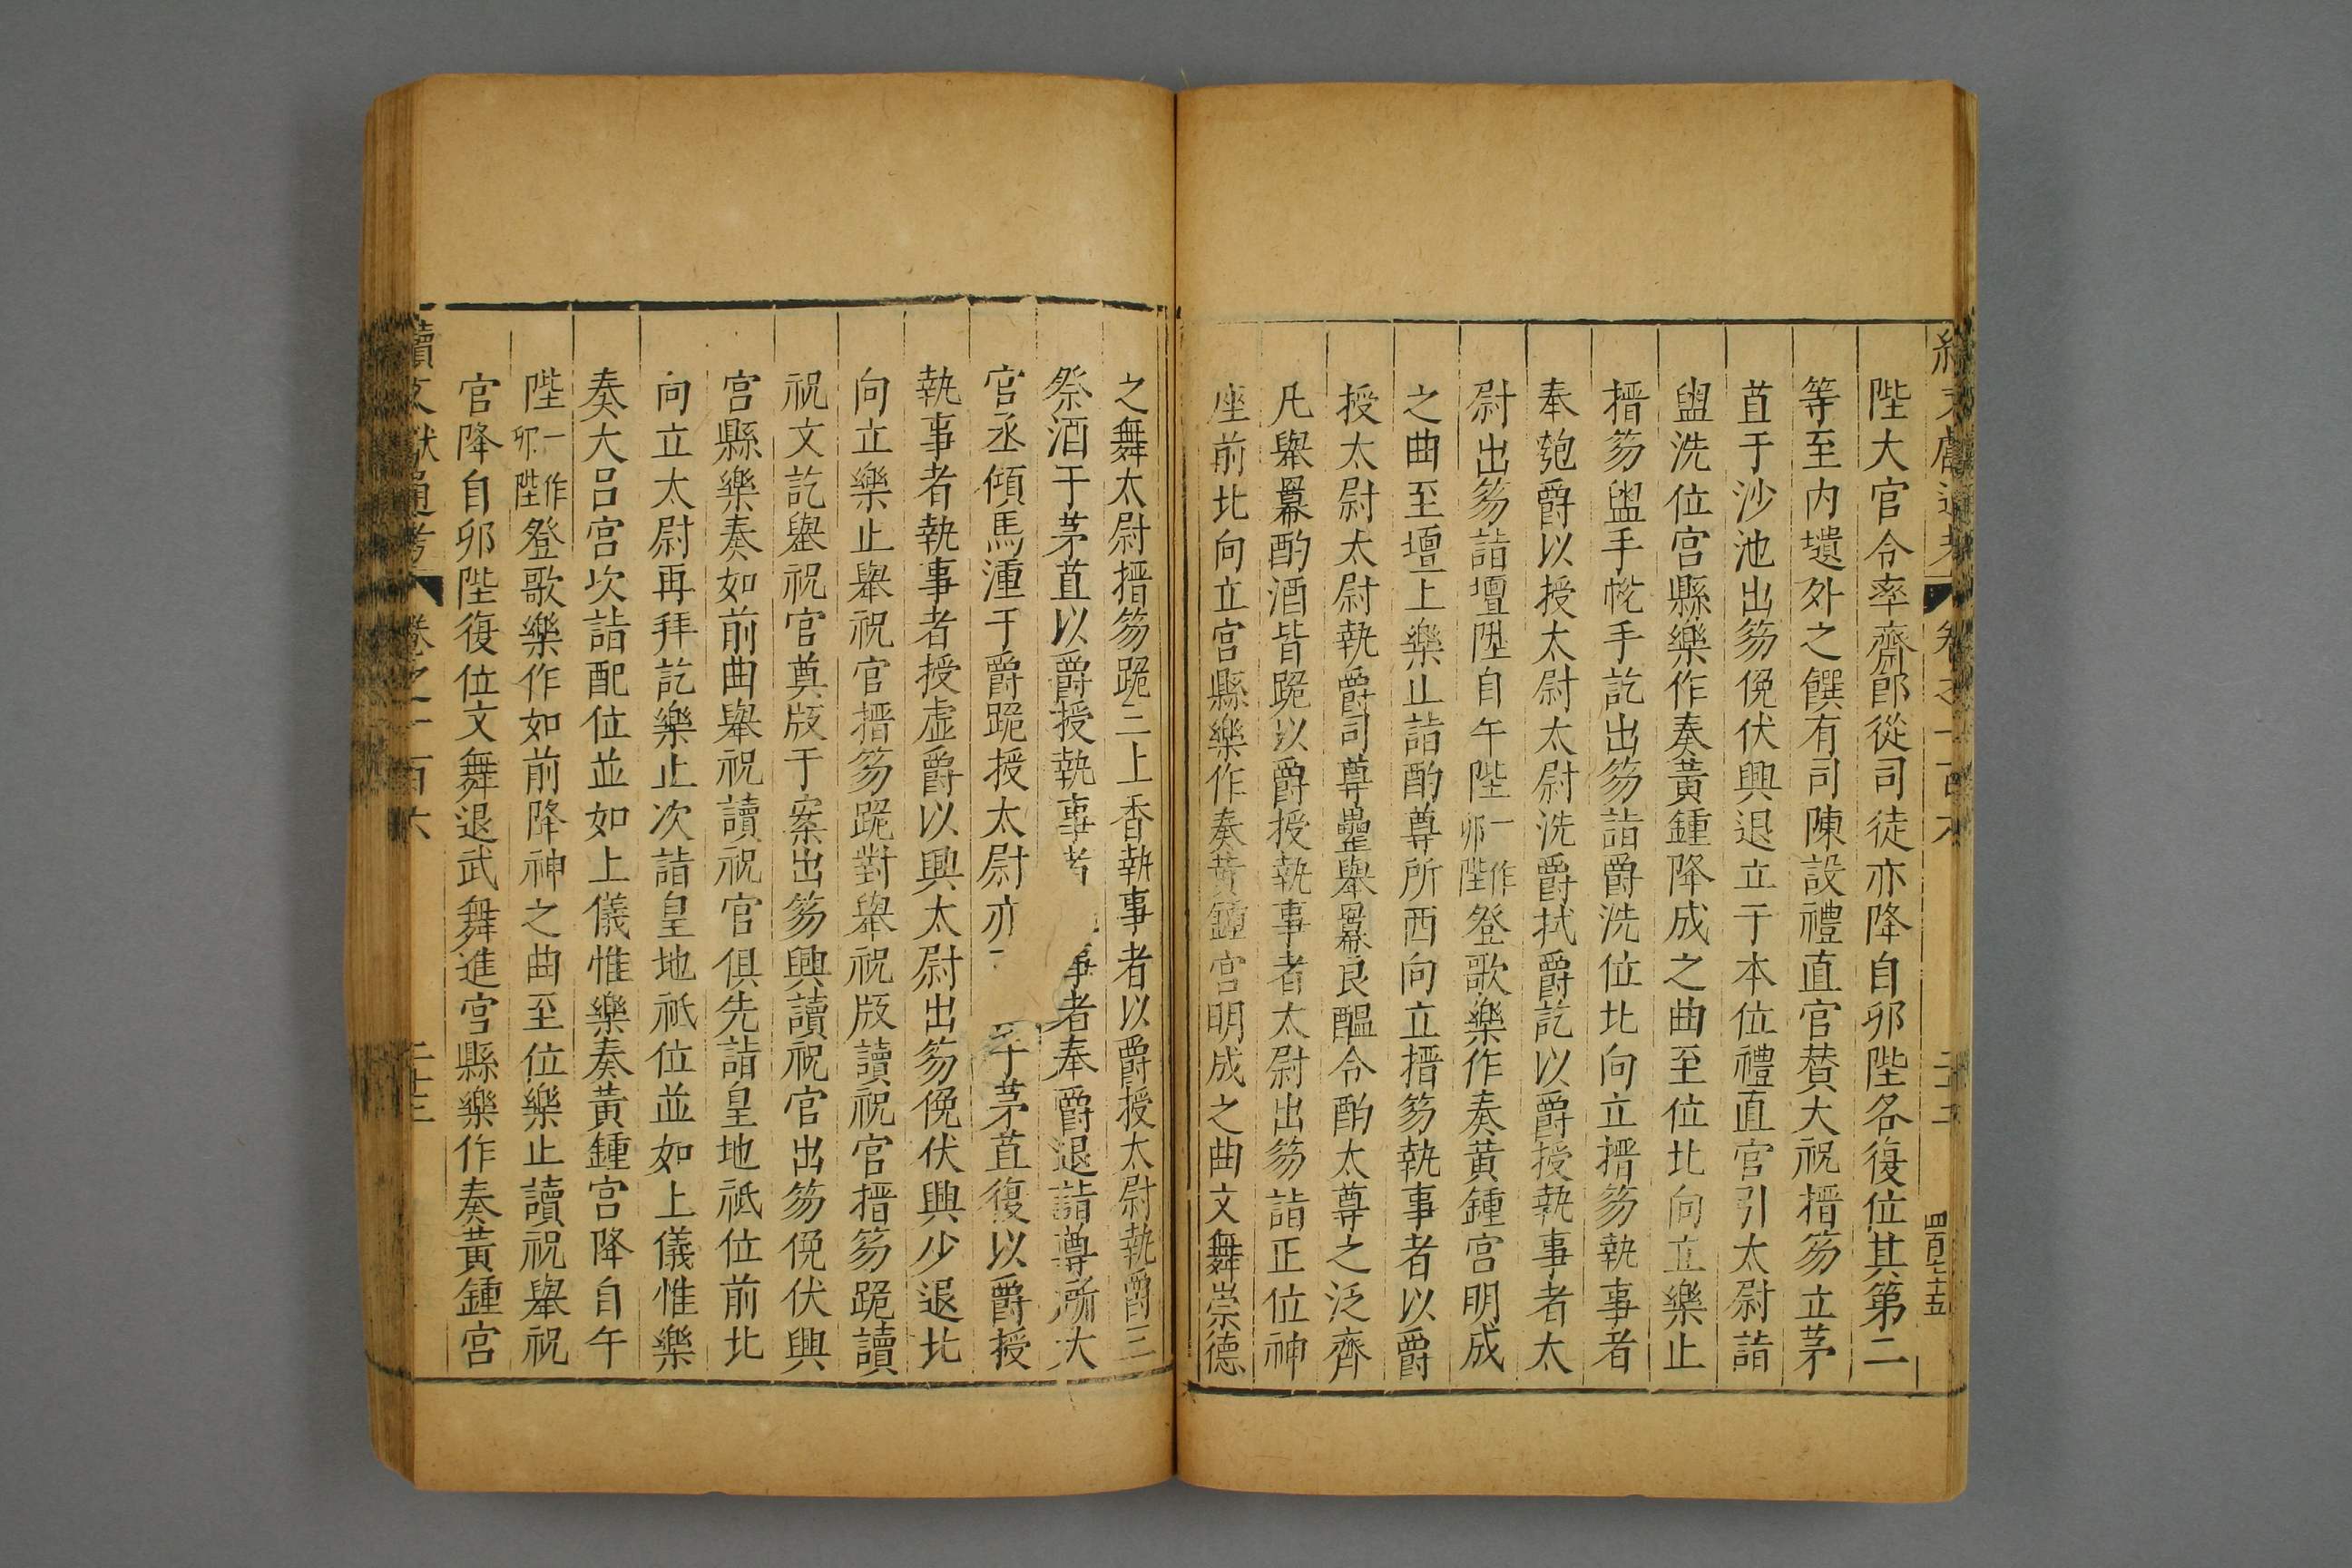 陛大官令率齋郎從司徒亦降自卯陛各復位其第二
等至内壝外之饌有司陳設禮直官賛大祝搢笏立茅
苴于沙池出笏俛伏興退立于本位禮直官引太尉詣
盥洗位宫縣樂作奏黃鍾降成之曲至位北向立樂止
搢笏盥手帨手訖出笏詣爵洗位北向立搢笏執事者
奉匏爵以授太尉太尉洗爵拭爵訖以爵授執事者太
尉出笏詣壇陞自午陛一作卯陛登歌樂作奏黃鍾宫明成
之曲至壇上樂止詣酌尊所西向立搢笏執事者以爵
授太尉太尉執爵司尊罍舉羃良醞令酌太尊之泛齊
凡舉羃酌酒皆跪以爵授執事者太尉出笏詣正位神
座前北向立宫縣樂作奏黃鍾宫明成之曲文舞崇德
之舞太尉搢笏跪三上香執事者以爵授太尉執爵三
祭酒于茅苴以爵授執事者 事者奉爵退詣尊所大
官丞傾馬湩于爵跪授太尉亦 于茅苴復以爵授
執事者執事者授虛爵以興太尉出笏俛伏興少退北
向立樂止舉祝官搢笏跪對舉祝版讀祝官搢笏跪讀
祝文訖舉祝官奠版于案出笏興讀祝官出笏俛伏興
宫縣樂奏如前曲舉祝讀祝官俱先詣皇地祇位前北
向立太尉再拜訖樂止次詣皇地祇位並如上儀惟樂
奏大呂宫次詣配位並如上儀惟樂奏黃鍾宫降自午
陛一作卯陛登歌樂作如前降神之曲至位樂止讀祝舉祝
官降自卯陛復位文舞退武舞進宫縣樂作奏黃鍾宫
續文獻通考 卷之一百六 二十三